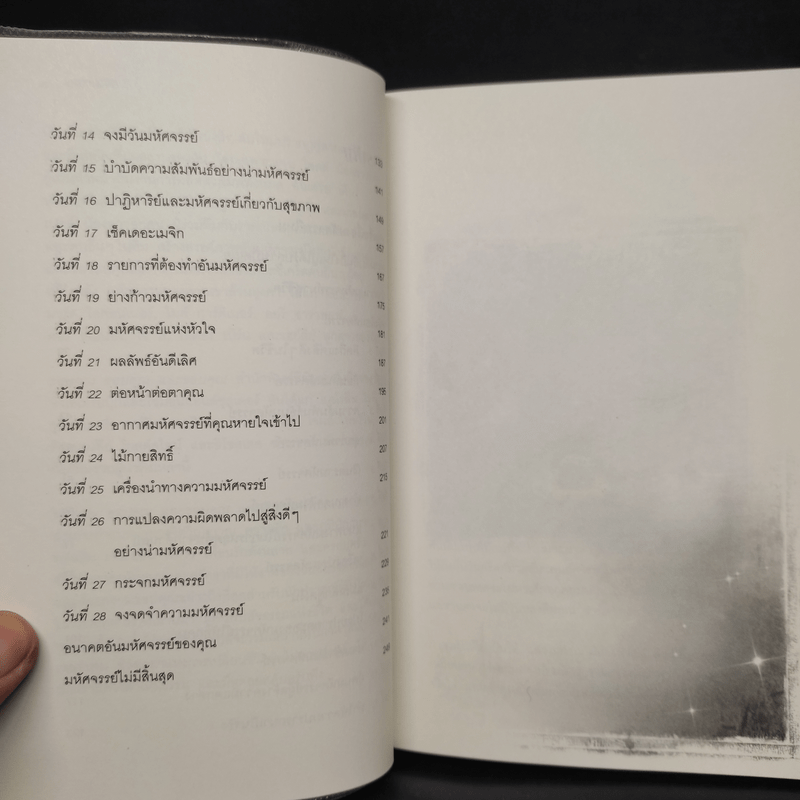 วันที่ 14 จงมีวันมหัศจรรย์
วันที่ 15 บำบัดความสัมพันธ์อย่างน่ามหัศจรรย์
วันที่ 16 ปาฏิหาริย์และมหัศจรรย์เกี่ยวกับสุขภาพ 149
วันที่ 17 เช็คเดอะเมจิก 157
วันที่ 18 รายการที่ต้องทำอันมหัศจรรย์ 167
วันที่ 19 ย่างก้าวมหัศจรรย์ 175
วันที่ 20 มหัศจรรย์แห่งหัวใจ 181
วันที่ 21 ผลลัพธ์อันดีเลิศ 187
วันที่ 22 ต่อหน้าต่อตาคุณ 195
วันที่ 23 อากาศมหัศจรรย์ที่คุณหายใจเข้าไป 201
วันที่ 24 ไม้กายสิทธิ์ 207
วันที่ 25 เครื่องนำทางความมหัศจรรย์ 215
วันที่ 26 การแปลงความผิดพลาดไปสู่สิ่งดีๆ
อย่างน่ามหัศจรรย์
วันที่ 27 กระจกมหัศจรรย์
วันที่ 28 จงจดจำความมหัศจรรย์ 235
อนาคตอันมหัศจรรย์ของคุณ 241
มหัศจรรย์ไม่มีสิ้นสุด